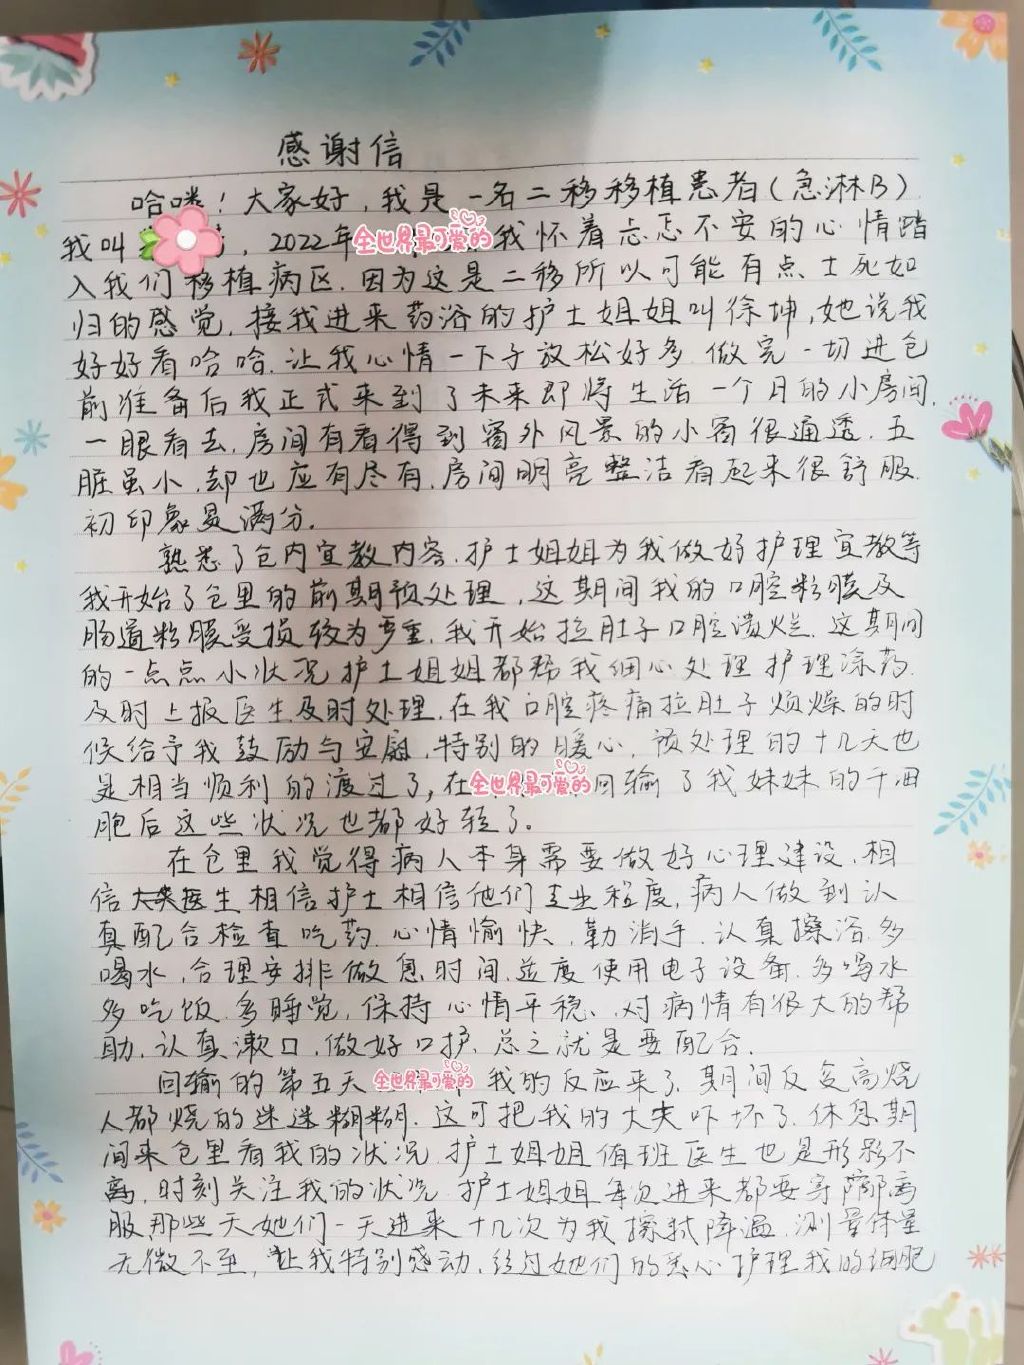 感谢信
哈喽！大家好，我是一名二移移植患者（急淋B）
我叫，2022年全世界最可爱的我怀着忐忑不安的心情踏
入我们移植病区.因为这是二移所以可能有点士死如
归的感觉.接我进来药浴的护士姐姐叫徐坤,她说我
好好看哈哈.让我心情一下子放松好多.做完一切进仓
前准备后我正式来到了未来即将生活一个月的小房间.
一眼看去.房间有看得到窗外风景的小窗很通透.五
脏虽小.却也应有尽有.房间明亮整洁看起来很舒服.
初印象是满分.
熟悉了仓内宣教内容.护士姐姐为我做好护理宣教等
我开始了仓里的前期预处理，这期间我的口腔粘膜及
肠道粘膜受损较为严重.我开始拉肚子口腔溃烂.这期间
的一点点小状况护士姐姐都帮我细心处理护理涂药.
及时上报医生及时处理.在我口腔疼痛拉肚子烦燥的时
候给予我鼓励与安慰.特别的暖心.预处理的十几天也
是相当顺利的渡过了,在全世界最可爱的回输了我妹妹的干细
胞后这些状况也都好转了。
在仓里我觉得病人本身需要做好心理建设.相
信医生相信护士相信他们专业程度.病人做到认
真配合检查吃药.心情愉快.勤消手.认真擦浴.多
喝水.合理安排做息时间.适度使用电子设备.多喝水
多吃饭.多睡觉.保持心情平稳、.对病情有很大的帮
助.认真漱口.做好口护.总之就是要配合.
回输的第五天全世界最可爱的我的反应来了.期间反复高烧
人都烧的迷迷糊糊.这可把我的大夫吓坏了.休息期
间来仓里看我的状况.护士姐姐值班医生也是形影不
离.时刻关注我的状况.护士姐姐每次进来都要穿隔离
服那些天她们一天进来十几次为我擦拭降温.测量体量
无微不至,让我特别感动.经过她们的悉心护理我的细胞